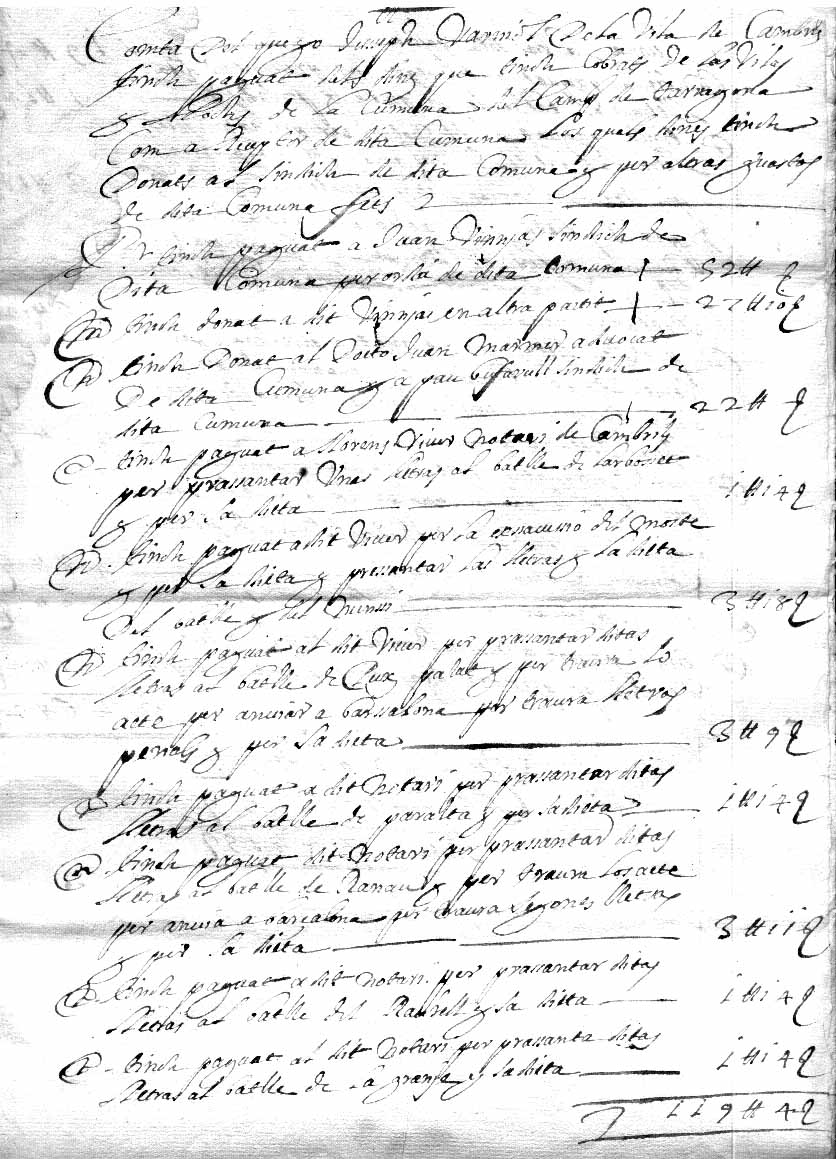 Conta Del que yo Joseph Varnis De la Vila de Cambrils
tinch paguat dels dines que tinch Cobrats de las Viles
y llochs de la Cumuna del Camp de tarragona
Com a Reseptor de dita Cumuna los quels dines tinch
Donats al sindich de dita Comuna y per altras guastos
de dita Comuna fets
Pr tinch paguat a Juan Vinyas sindich de
Dita Comuna per orda de dita Comuna — 52 ll ȝ
tt tinch donat a dit Vinyas en altra partit — 27 ll 10 ȝ
tt tinch Donat al Docto Juan Marmer advocat
De dita Cumuna y a pau sindich de
dita Cumuna — 22 ll ȝ
tinch paguat a llorens Viver notari de Cambrils
per prassantar Unes lletras al batlle de larbosset
y per la dieta — 1 ll 14 ȝ
tt tinch paguat a dit Viver per la del
y per la dieta y pressantar las lletras y la dieta
Del batlle y del — 3 ll 18 ȝ
tt tinch paguat al dit Viver per prassantar ditas
lletras al batlle de Pux palat y per traura lo
acte per anviar a barsalona per traura lletras
penals y per la dieta — 3 ll 9 ȝ
tt tinch paguat a dit notari per prassantar ditas
lletras al batlle de paralta y per la dieta — 1 ll 14 ȝ
tt tinch paguat dit notari per prassantar ditas
lletras al batlle de Ranau y per traura los acte
per anvia a barcalona per traura segones lletras
y per la dieta — 3 ll 11 ȝ
tt tinch paguat a dit notari per prassantar ditas
lletras al batlle del Raurell y la ditta — 1 ll 14 ȝ
tt tinch paguat al dit notari per prassanta ditas
lletras al batlle de la granja y la dieta — 1 ll 14 ȝ
119 ll 4 ȝ